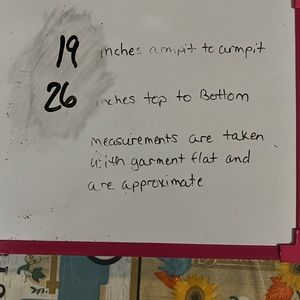 19 inches armpit to armpit
26 inches top to Bottom
measurements are taken
with garment flat and
are approximate